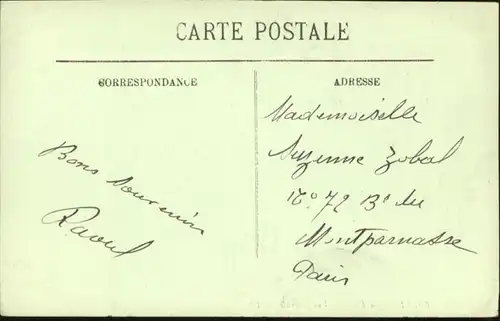 CARTE POSTALE
CORRESPONDANCE
ADRESSE
Bons souvenirs
Raoul
Mademoiselle
Suzanne Zobal
No 72 Bd du
Montparnasse
Paris